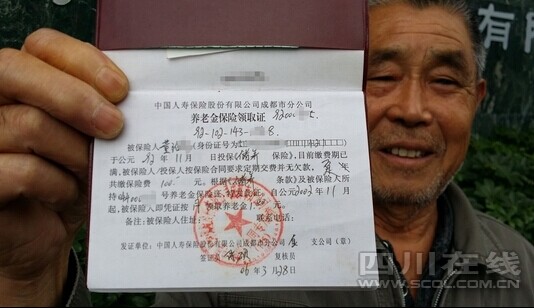 有限
中国人寿保险股份有限公司成都市分公司
养老金保险领取证
82-102-143- 8
被保险人 (身份证号为
于公元 82 年 11 月 日投保( 保险),目前缴费期已
满,被保险人/投保人按保险合同要求定期交费并无欠款,
共缴保险费 100 元。根据( 条款)及被保险人所
持 号养老金保险证,核发此证。自公元2003年11月
起,被保险人即凭证按月领取养老金 元。
备注:被保险人住址: 联系电话:
发证单位:中国人寿保险股份有限公司成都市分公司 支公司(章)
签证员 复核员
06年3月28日
四川在线
WWW.SCOL.COM.CN